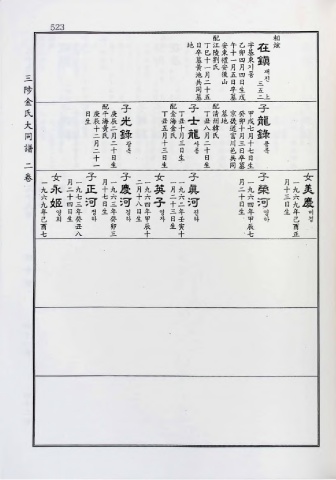 523
三陟金氏大同譜 二卷
相說
在鎭 재진 三五二 上
字基東 기동
乙卯四月四日生戊
午十一月五日卒墓
安東禮安後山
配江陵劉氏
丁巳十一月二十五
日卒墓黃池共同墓
地
子龍錄 룡록
甲戌七月十七日生
癸卯十月三日卒墓
京後道富川邑共同
墓地
配清州韓氏
丁丑八月二十日生
子士龍 사룡
丁丑十月三日生
配金海金氏
丁丑五月十三日生
子光錄 광록
庚辰二月二十日生
配牛海黃氏
庚辰十二月二十一
日生
女美慶 미경
一九六九年己酉正
月十三日生
子榮河 영하
一九六四年甲辰二
月二十日生
子眞河 진하
一九六二年壬寅十
一月二十三日生
女英子 영자
一九六四年甲辰十
二月十八日生
子慶河 경하
一九六三年癸卯三
月十七日生
子正河 정하
一九七三年癸丑八
月二十四日生
女永姬 영희
一九六九年己酉七